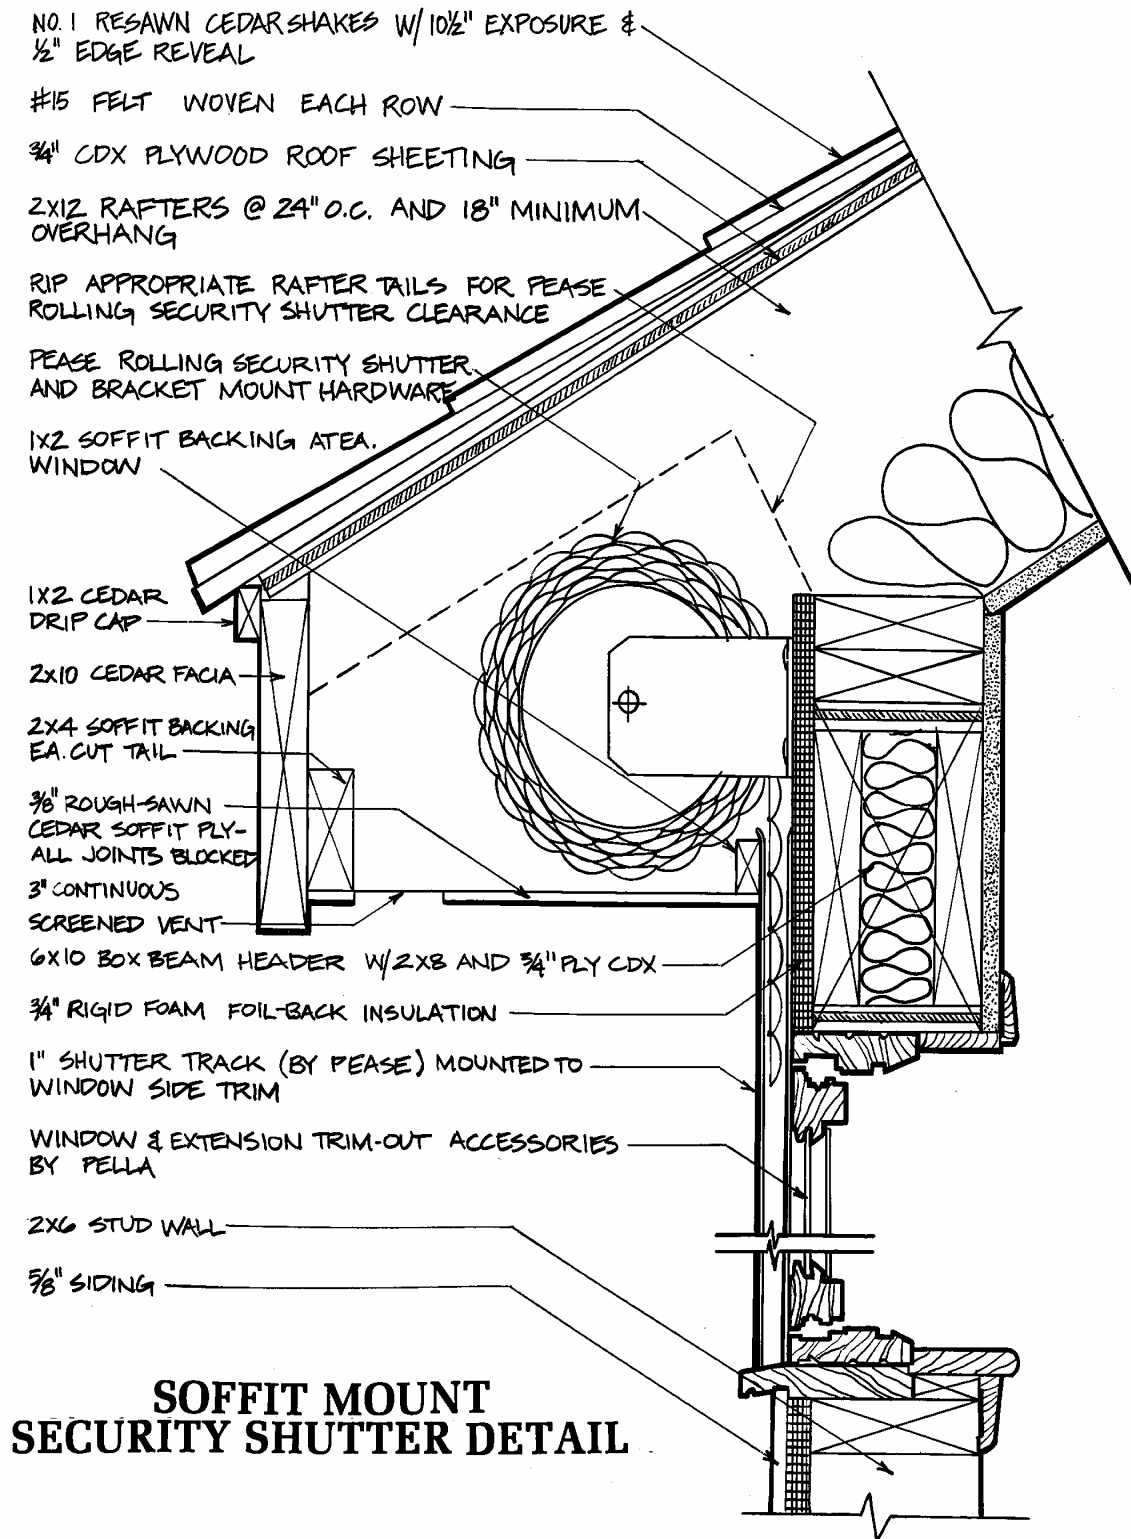 NO. 1 RESAWN CEDAR SHAKES W/ 10½" EXPOSURE &
½" EDGE REVEAL
#15 FELT WOVEN EACH ROW
¾" CDX PLYWOOD ROOF SHEETING
2X12 RAFTERS @ 24" O.C. AND 18" MINIMUM
OVERHANG
RIP APPROPRIATE RAFTER TAILS FOR PEASE
ROLLING SECURITY SHUTTER CLEARANCE
PEASE ROLLING SECURITY SHUTTER
AND BRACKET MOUNT HARDWARE
1X2 SOFFIT BACKING AT EA.
WINDOW
1X2 CEDAR
DRIP CAP
2X10 CEDAR FACIA
2X4 SOFFIT BACKING
EA. CUT TAIL
⅜" ROUGH-SAWN
CEDAR SOFFIT PLY-
ALL JOINTS BLOCKED
3" CONTINUOUS
SCREENED VENT
6X10 BOX BEAM HEADER W/2X8 AND ¾" PLY CDX
¾" RIGID FOAM FOIL-BACK INSULATION
1" SHUTTER TRACK (BY PEASE) MOUNTED TO
WINDOW SIDE TRIM
WINDOW & EXTENSION TRIM-OUT ACCESSORIES
BY PELLA
2X6 STUD WALL
⅝" SIDING
SOFFIT MOUNT
SECURITY SHUTTER DETAIL